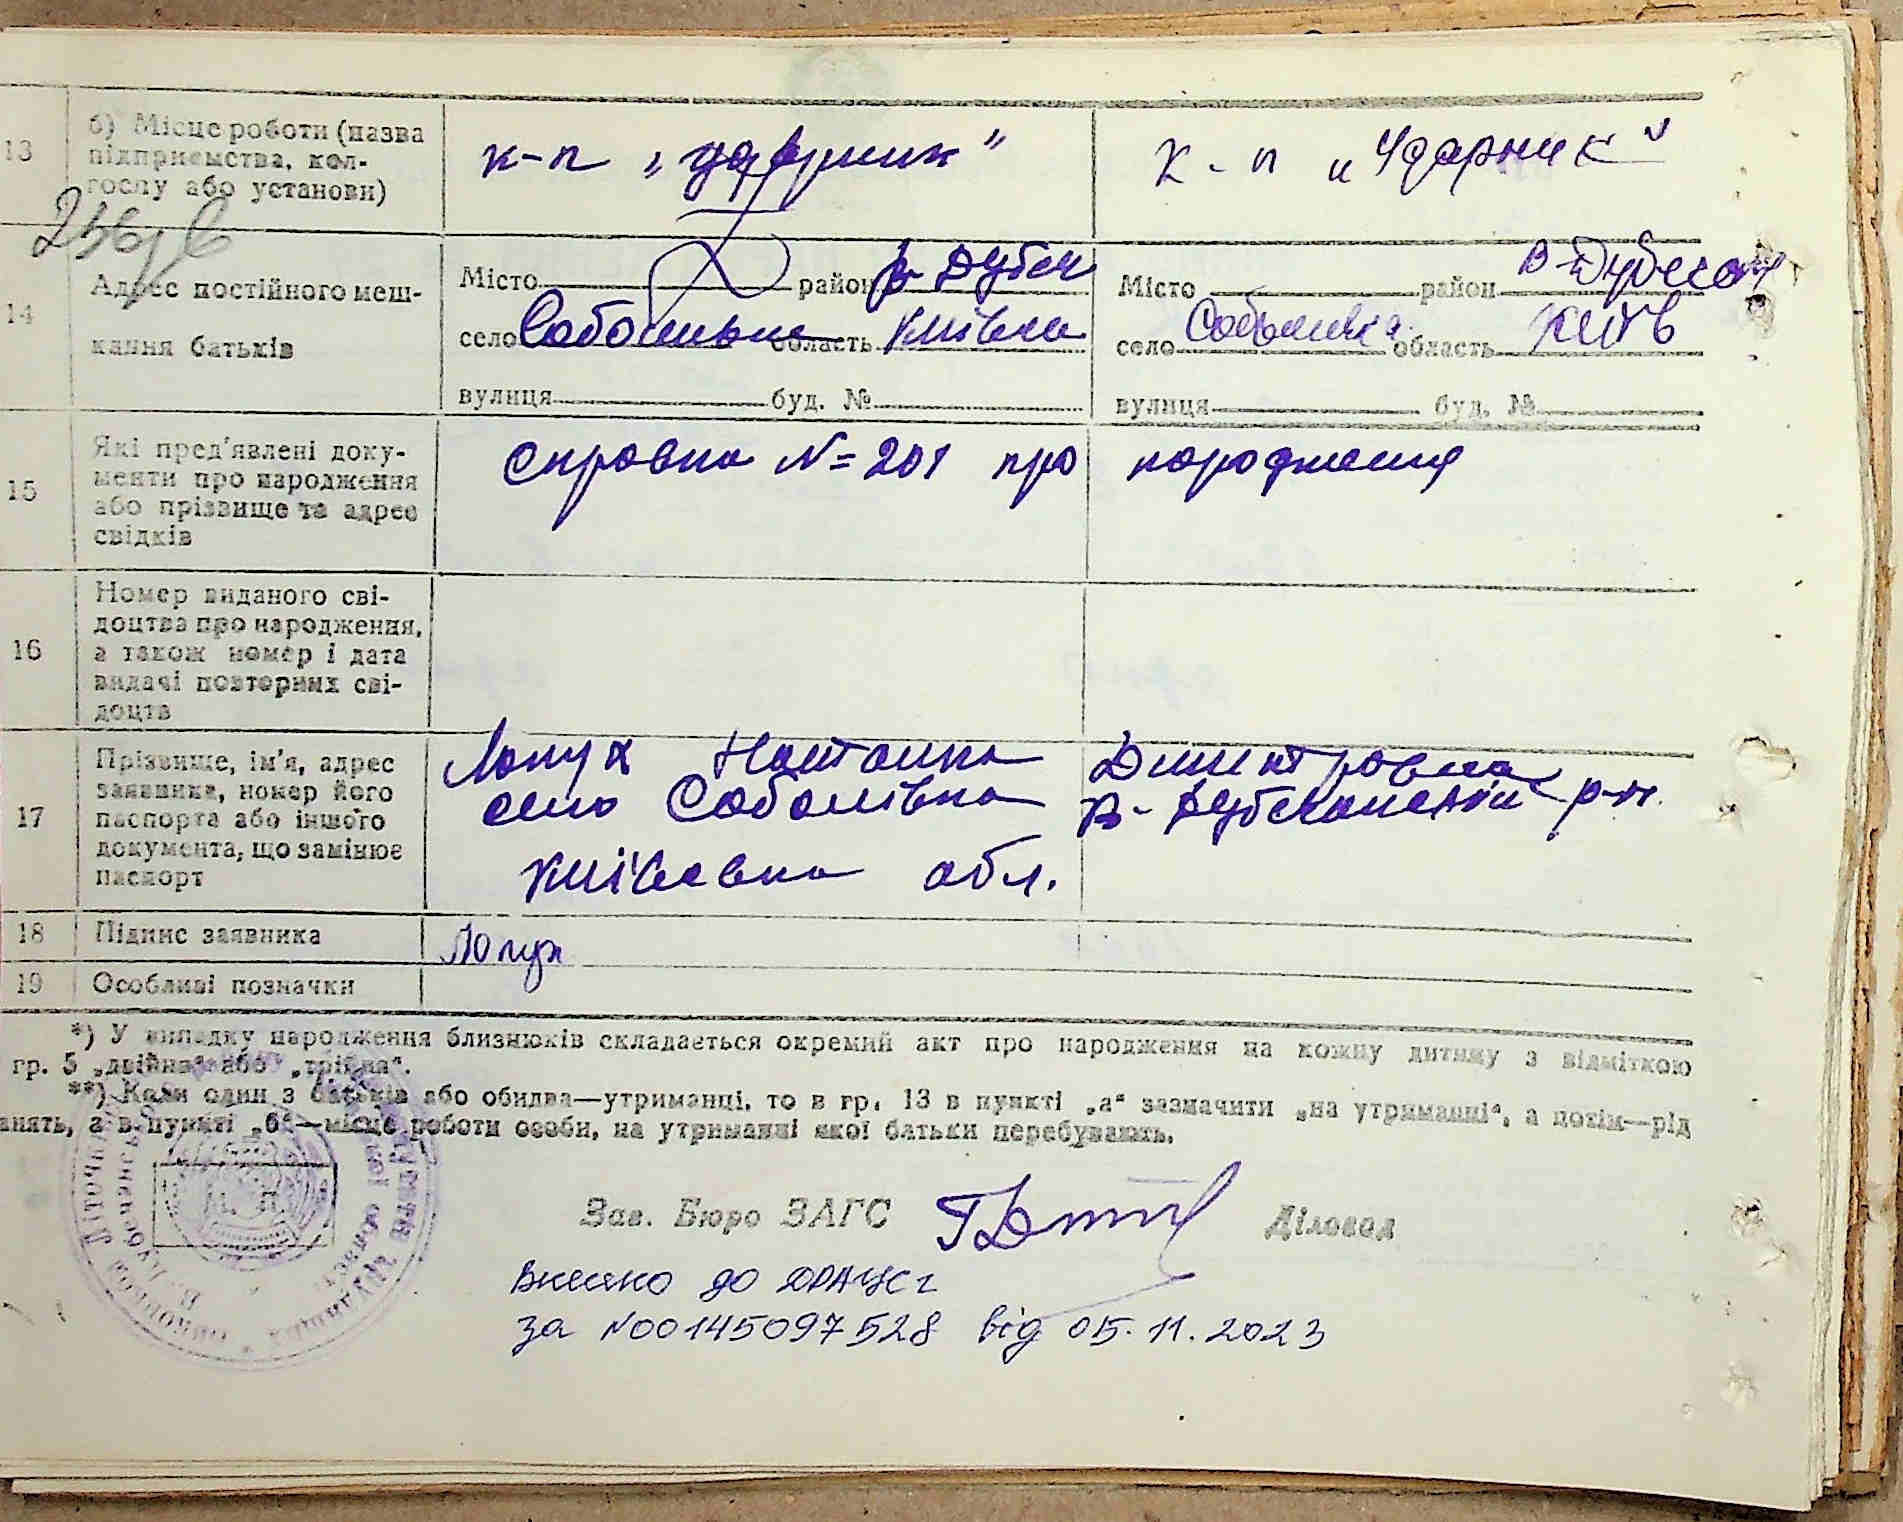 13 б) Місце роботи (назва підприємства, кол-госпу або установи) к-п „ударник" к-п „Ударник"
14 Адрес постійного меш-кання батьків
Місто район В-Дубеч Місто район В-Дубечан
село Соболівка область Київська село Соболівка область Київ
вулиця буд. № вулиця буд. №
15 Які пред'явлені доку-
менти про народження
або прізвище та адрес
свідків
справка № 201 про народження
16 Номер виданого сві-
доцтва про народження,
а також номер і дата
видачі повторних сві-
доцтв
17 Прізвище, ім'я, адрес
заявника, номер його
паспорта або іншого
документа, що замінює
паспорт
Лопух Наталка Дмитровна
село Соболівка В- р-н.
Київська обл.
18 Підпис заявника Лопух
19 Особливі позначки
*) У випадку народження близнюків складається окремий акт про народження на кожну дитину з відміткою
гр. 5 „двійна" або „трійна".
**) Коли один з батьків або обидва—утриманці, то в гр. 13 в пункті „а" зазначити „на утриманні", а потім—рід
анять, а в пункті „б"—місце роботи особи, на утриманні якої батьки перебувають.
Зав. Бюро ЗАГС Діловод
Внесено до ДРАЦСг
за №00145097528 від 05.11.2023